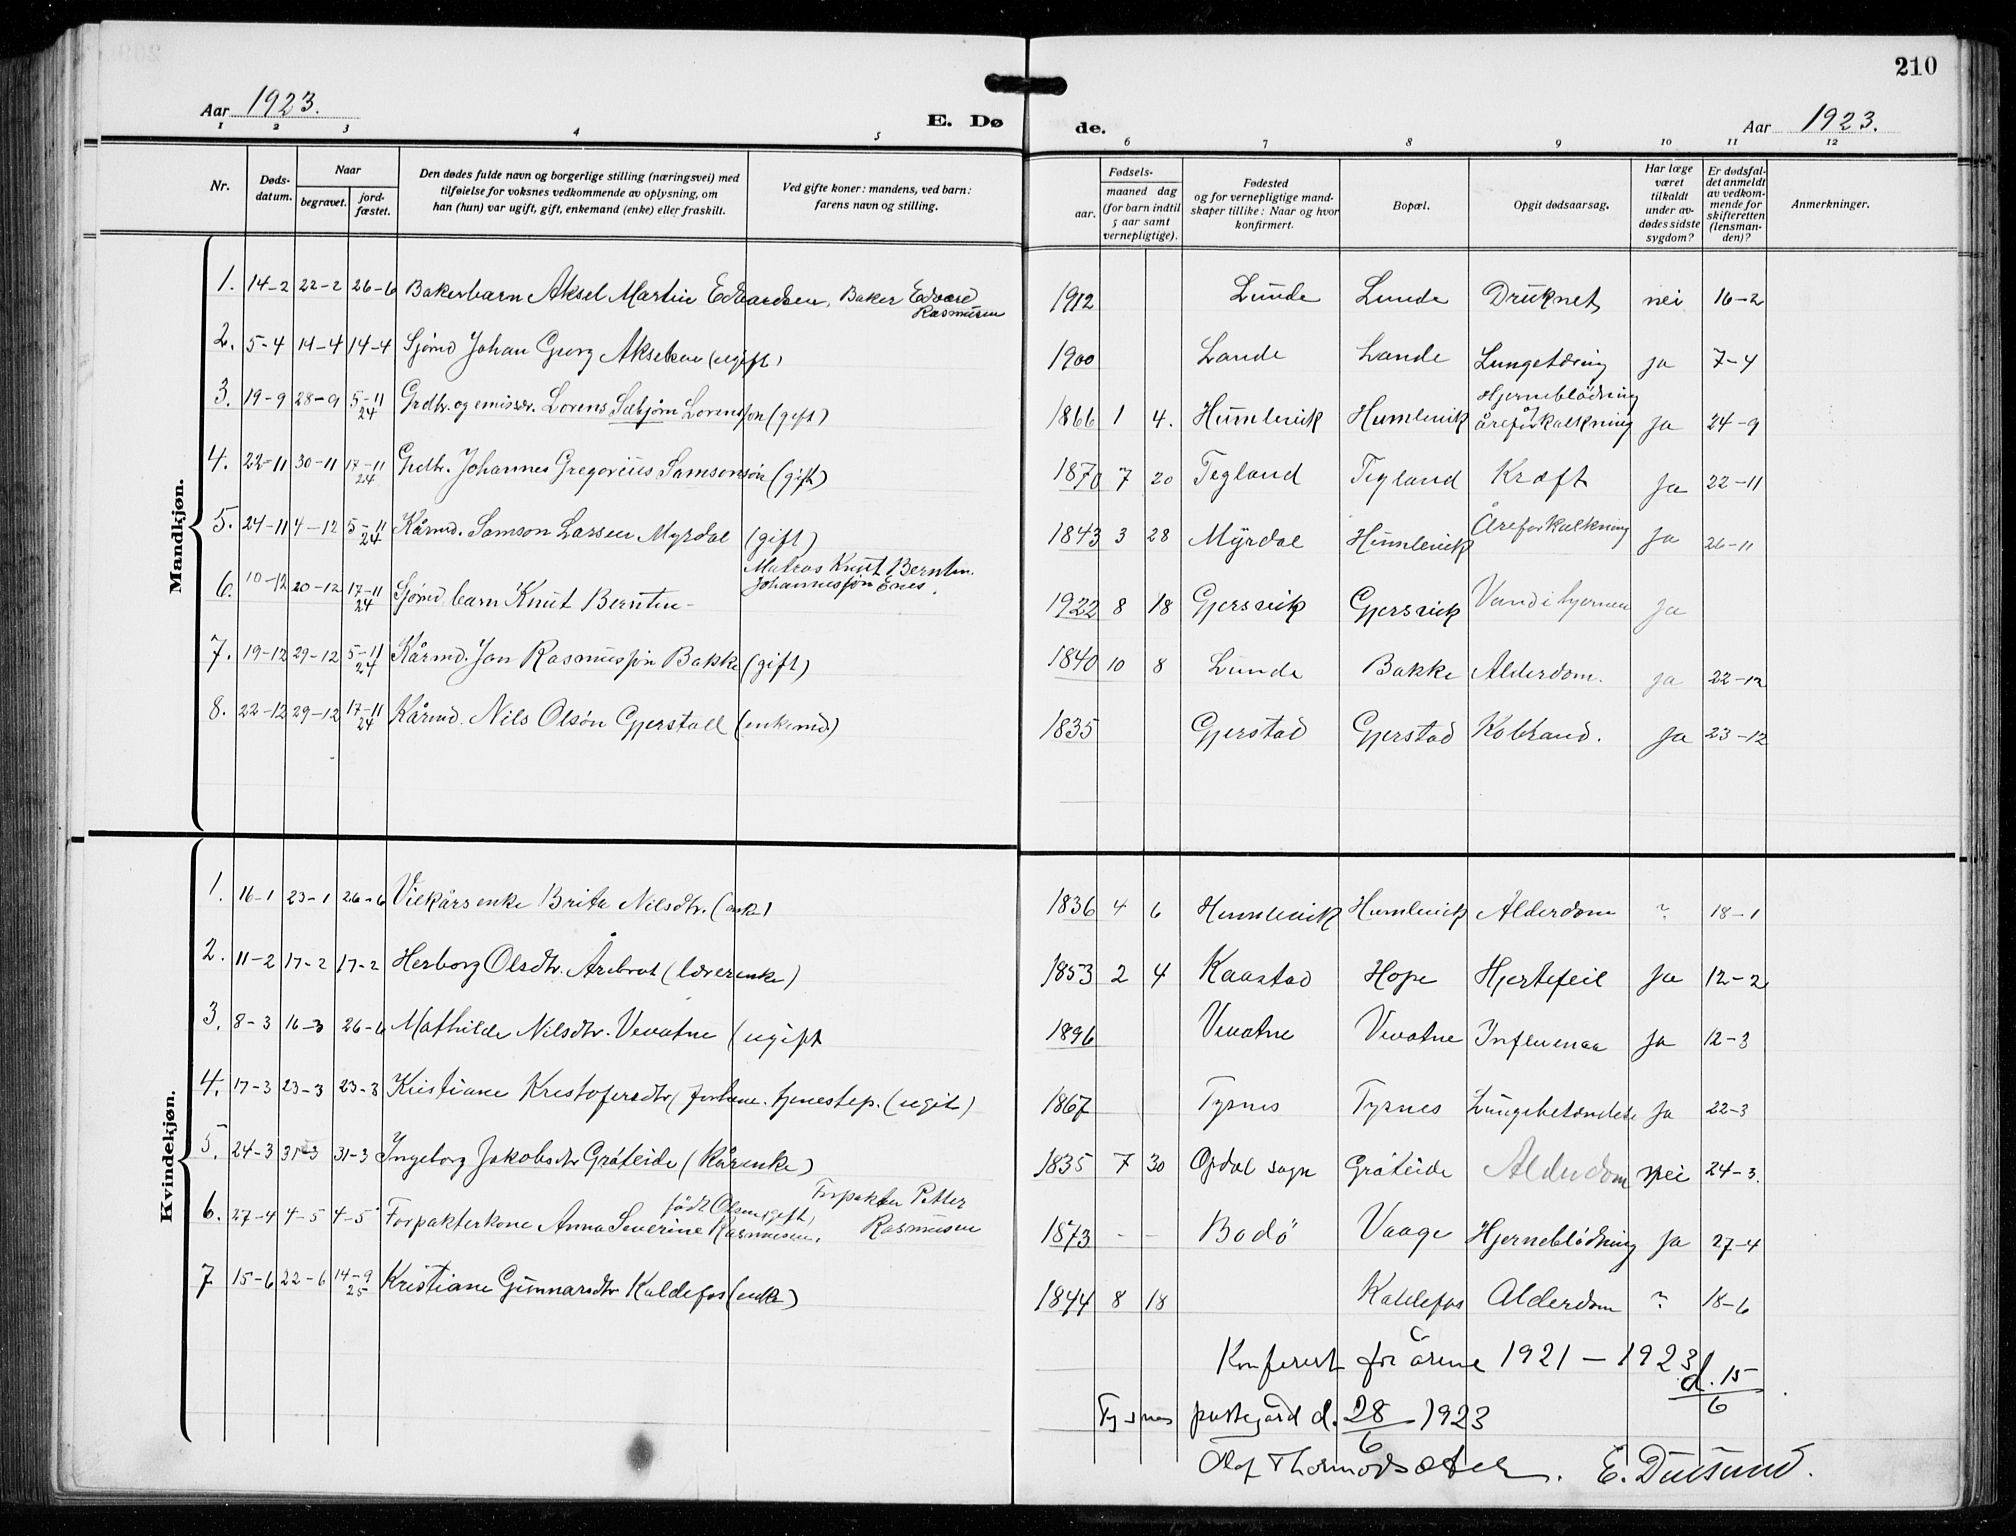 210
Aar 1923.
E. Dø de.
Aar 1923.
1 2 3 4 5 6 7 8 9 10 11 12
Nr.
Døds-datum.
Naar
begravet.
jord-fæstet.
Den dødes fulde navn og borgerlige stilling (næringsvei) med
tilføielse for voksnes vedkommende av oplysning, om
han (hun) var ugift, gift, enkemand (enke) eller fraskilt.
Ved gifte koner: mandens, ved barn:
farens navn og stilling.
Fødsels-
aar.
maaned dag
(for barn indtil
5 aar samt
vernepligtige).
Fødested
og for vernepligtige mand-
skaper tillike: Naar og hvor
konfirmert.
Bopæl.
Opgit dødsaarsag.
Har læge
været
tilkaldt
under av-
dødes sidste
sygdom?
Er dødsfal-
det anmeldt
av vedkom-
mende for
skifteretten
(lensman-
den)?
Anmerkninger.
Mandkjøn.
1. 14-2 22-2 26-6 Bakerbarn Aksel Martin Edvardsen, Baker Edvard Rasmusen 1912 Lunde Lunde Druknet nei 16-2
2. 5-4 14-4 14-4 Sjømd Johan Georg Akselsen (ugift) 1900 Lande Lande Lungetæring ja 7-4
3. 19-9 28-9 5-11 24 Grdbr. og emissær. Lorens Sæbjørn Lorensjøn (gift) 1866 1 4. Humlevik Humlevik Hjerneblödning og åreforkalkning ja 24-9
4. 22-11 30-11 17-11 24 Grdbr. Johannes Gregorius Samsonsøn (gift) 1870 7 20 Tegland Tegland Kræft ja 22-11
5. 24-11 4-12 5-11 24 Kårmd. Samson Larsen Myrdal (gift) 1843 3 28 Myrdal Humlevik Åreforkalkning ja 26-11
6. 10-12 20-12 17-11 24 Sjømd barn Knut Berntin - Matros Knut Berntin Johannesjøn Enes. 1922 8 18 Gjersvik Gjersvik Vand i hjernen ja
7. 19-12 29-12 5-11 24 Kårmd. Jan Rasmusjön Bakke (gift) 1840 10 8 Lunde Bakke Alderdom. ja 22-12
8. 22-12 29-12 17-11 24 Kårmd. Nils Olsön Gjerstad (enkemd.) 1835 Gjerstad Gjerstad Kolbrand. ja 23-12
Kvindekjøn.
1. 16-1 23-1 26-6 Vilkårsenke Brita Nilsdtr. (enke) 1836 4 6 Humlevik Humlevik Alderdom ? 18-1
2. 11-2 17-2 17-2 Herborg Olsdtr. Årebrot (lærerenke) 1853 2 4 Kaastad Hope Hjertefeil ja 12-2
3. 8-3 16-3 26-6 Mathilde Nilsdtr. Vevatne (ugift 1896 Vevatne Vevatne Influensa ja 12-3
4. 17-3 23-3 23-3 Kristiane Kristofersdtr tjenestep. (ugit) 1867 Tysnes Tysnes Lungebetændelse ja 22-3
5. 24-3 31-3 31-3 Ingeborg Jakobsdtr Gråteide (Kårenke) 1835 7 30 Opdal sogn Gråteide Alderdom nei 24-3.
6. 27-4 4-5 4-5 Forpakterkone Anna Severine Rasmusen, født Olsen (gift) Forpakter Petter Rasmusen 1873 - - Bodö Vaage Hjerneblödning ja 27-4
7 15-6 22-6 14-9 25 Kristiane Gunnarsdtr Kaldefos (enke) 1844 8 18 Kaldefos Alderdom ? 18-6
Konferert for årene 1921 - 1923 d. 15/6
Tysnes prestegård d. 28/6 1923
Olof Thormodsæter. E. Duesund.